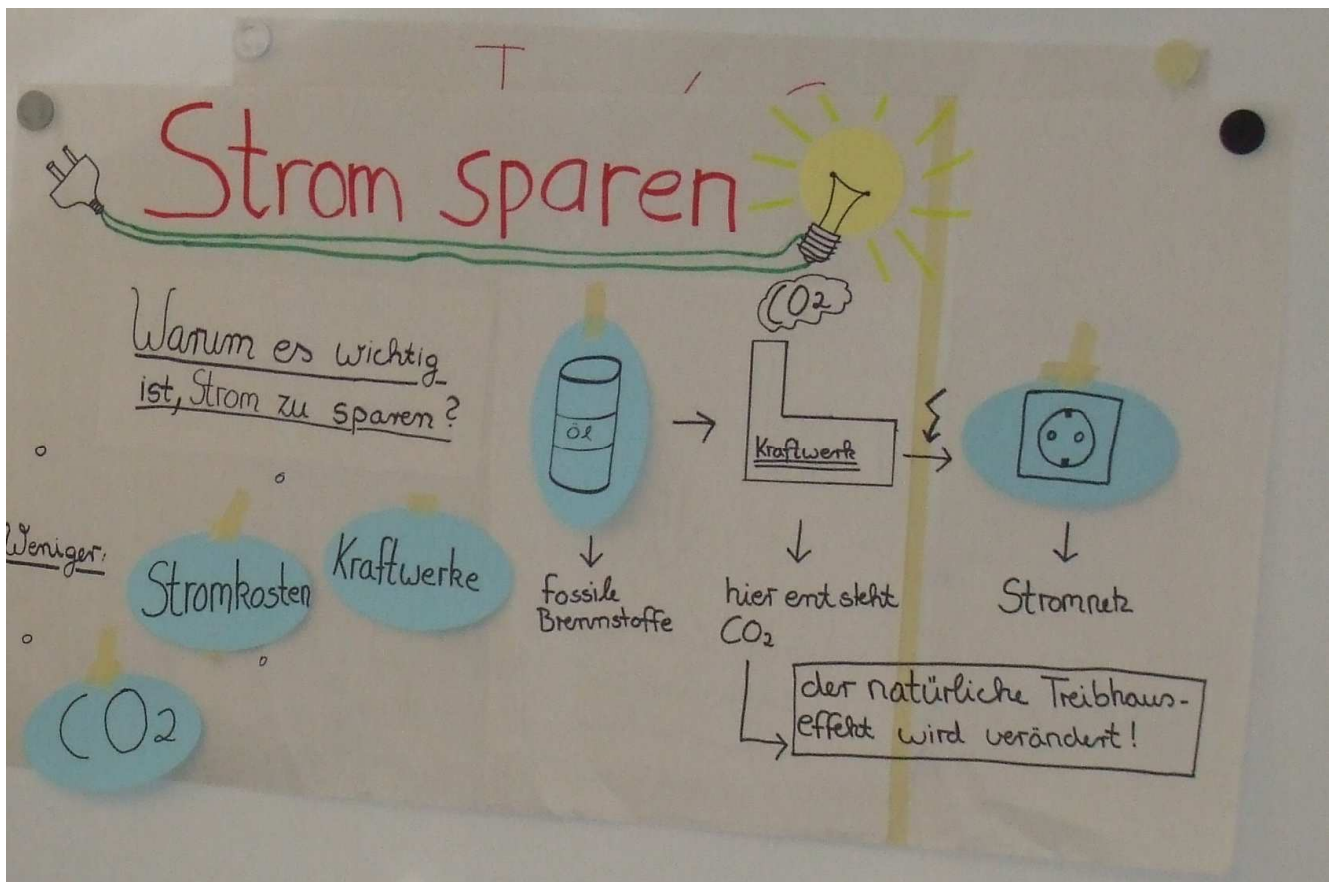 Strom sparen
CO2
Warum es wichtig
ist, Strom zu sparen?
Öl
Kraftwerk
Weniger:
Stromkosten
Kraftwerke
CO2
fossile
Brennstoffe
hier entsteht
CO2
Stromnetz
der natürliche Treibhaus-
effekt wird verändert!